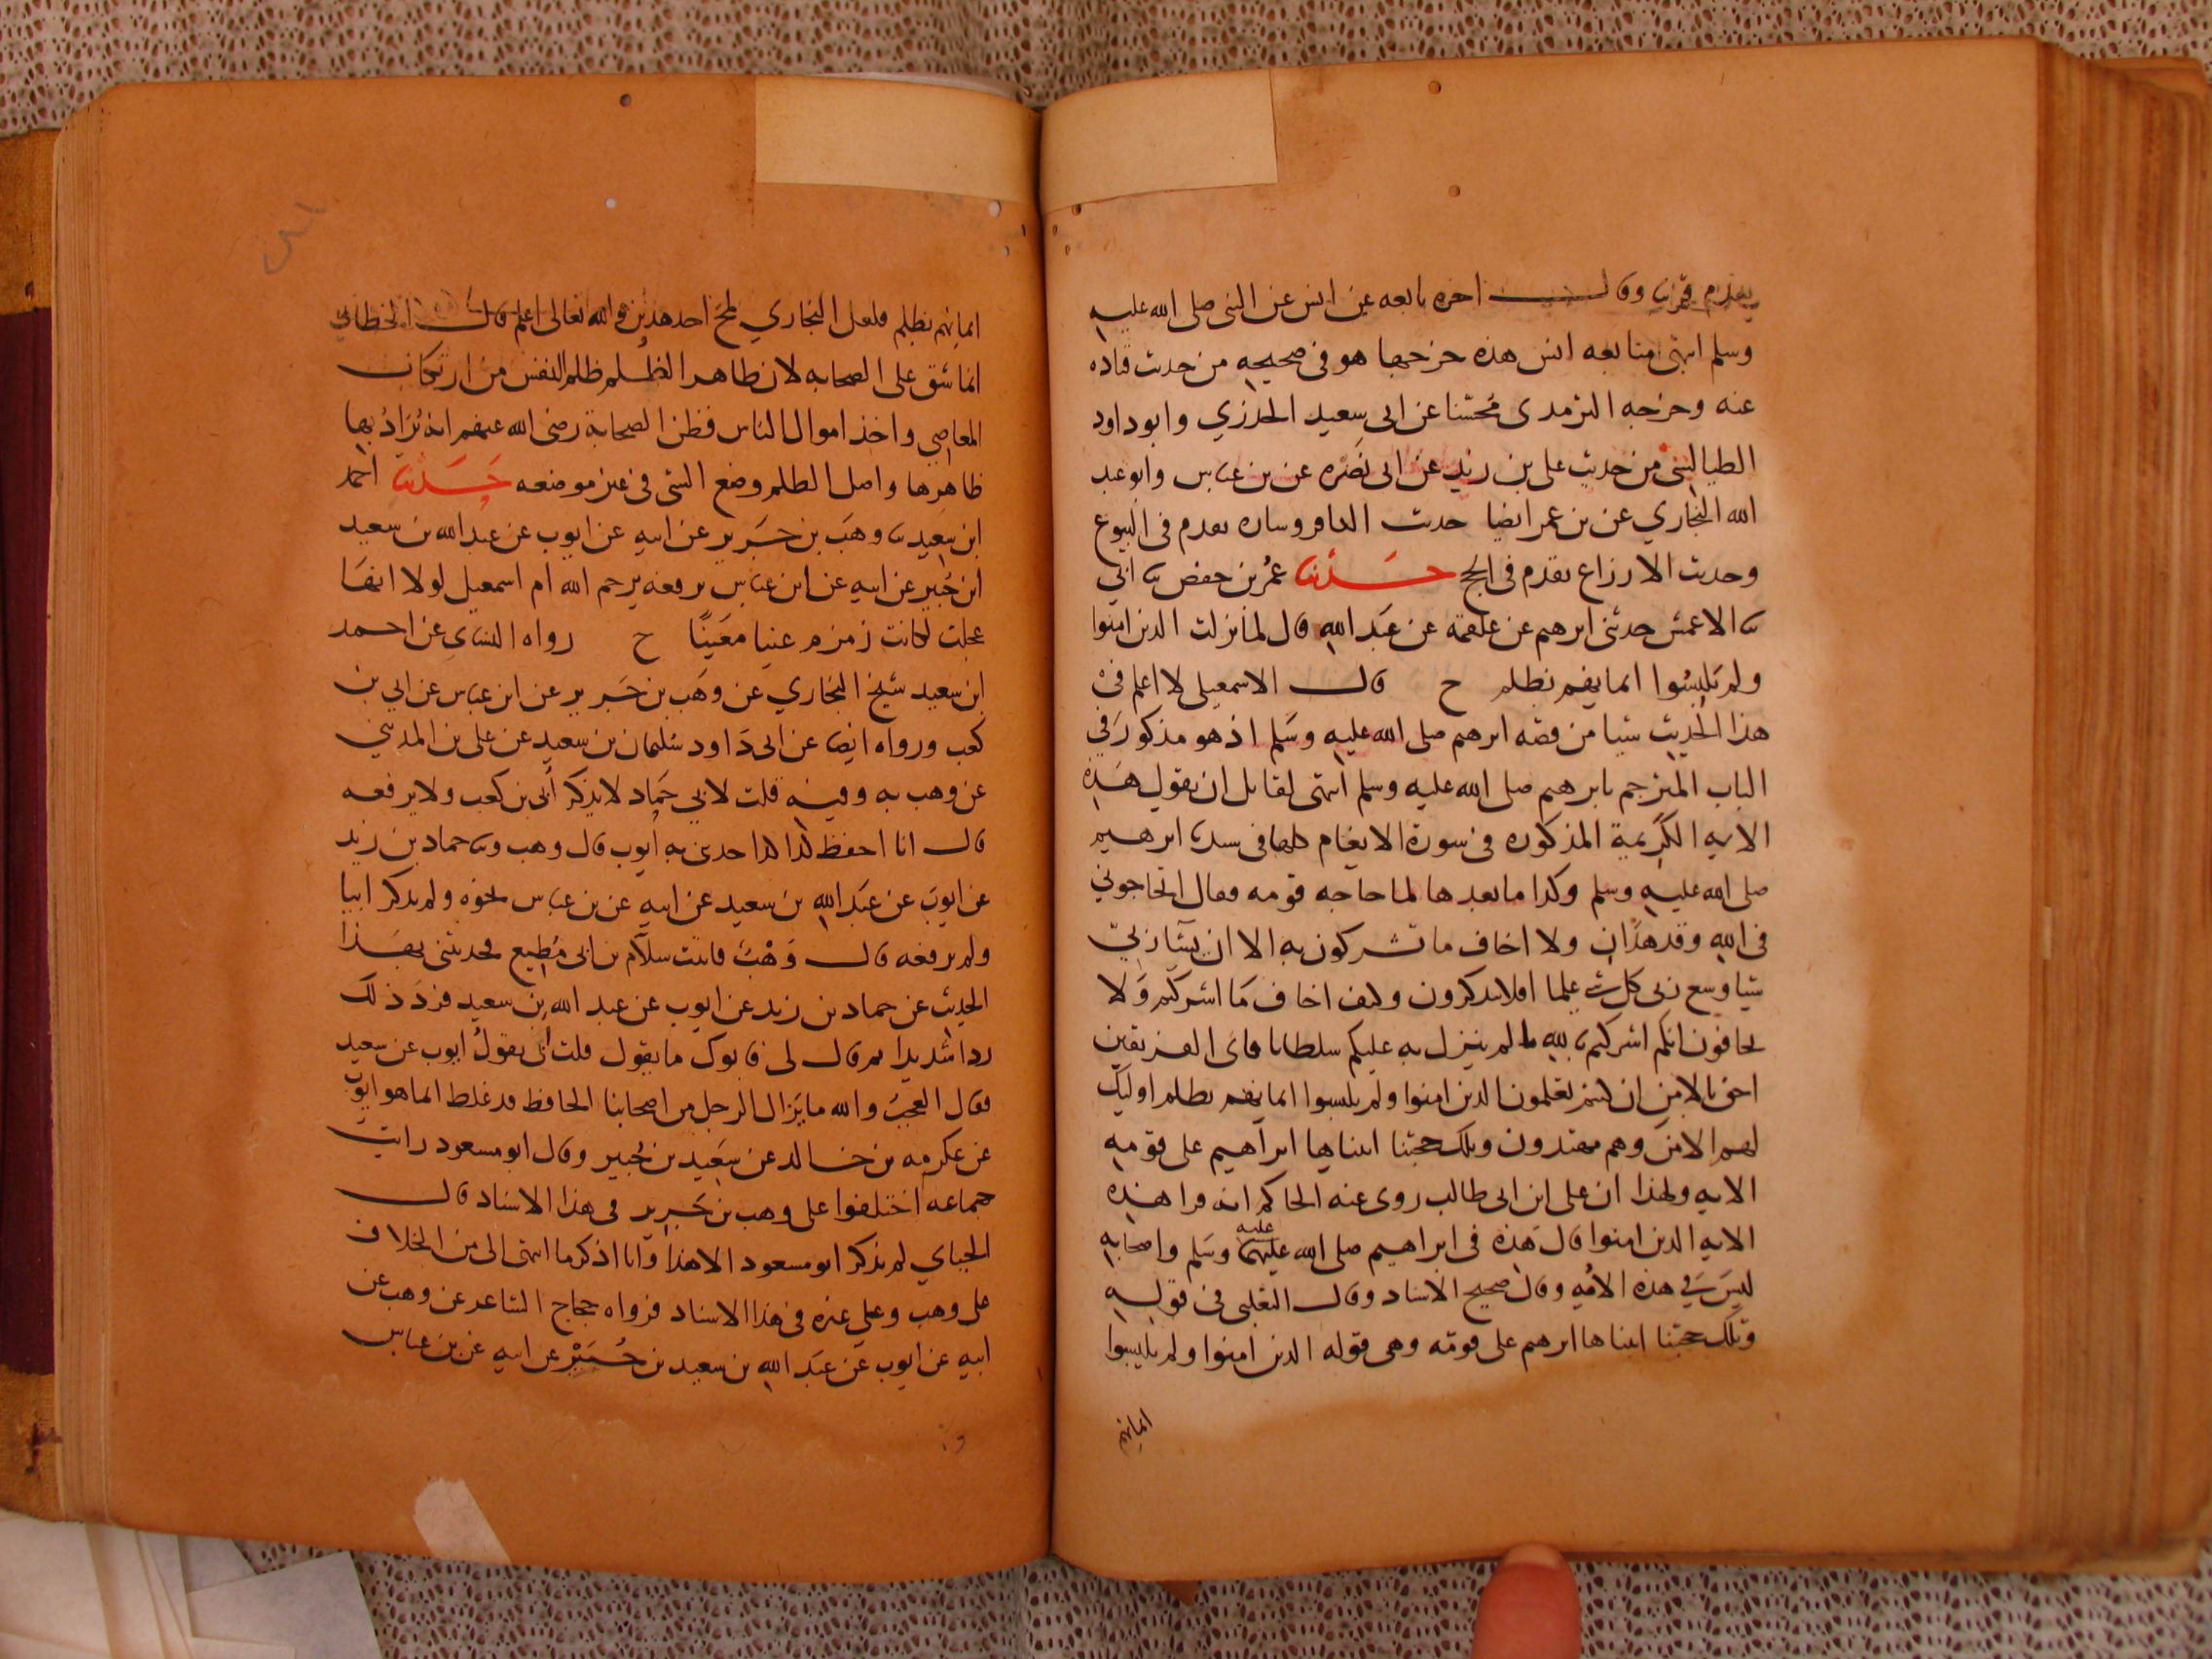 يقدم قريبا وقال اخره تابعه عن انس عن النبي صلى الله عليه
وسلم انتهى متابعه انس هذه خرجها هو في صحيحه من حديث قتاده
عنه وخرجه الترمذي محسنا عن ابي سعيد الخدري وابو داود
الطيالسي من حديث علي بن زيد عن ابي نضره عن بن عباس وابو عبد
الله البخاري عن بن عمر ايضا حديث وساره تقدم في البيوع
وحديث الاوزاع تقدم في الحج حدثنا عمر بن حفص نا ابي
نا الاعمش حدثني ابرهيم عن علقمة عن عبد الله قال لما نزلت الذين امنوا
ولم يلبسوا ايمانهم بظلم ح قال الاسمعيلي لا اعلم في
هذا الحديث شيا من قصه ابرهيم صلى الله عليه وسلم اذ هو مذكور في
الباب المترجم بابرهيم صلى الله عليه وسلم انتهى لقايل ان يقول هذه
الايه الكريمة المذكوره في سورة الانعام كلها في سيدنا ابرهيم
صلى الله عليه وسلم وكذا ما بعدها لما حاجه قومه فقال اتحاجوني
في الله وقد هدان ولا اخاف ما تشركون به الا ان يشا ربي
شيا وسع ربي كل شي علما افلا تتذكرون وكيف اخاف ما اشركتم ولا
تخافون انكم اشركتم بالله ما لم ينزل به عليكم سلطانا فاى الفريقين
احق بالامن ان كنتم تعلمون الذين امنوا ولم يلبسوا ايمانهم بظلم اوليك
لهم الامن وهم مهتدون وتلك حجتنا اتيناها ابراهيم على قومه
الايه ولهذا ان علي ابن ابي طالب روى عنه الحاكم انه قرا هذه
الايه الذين امنوا قال هذه في ابراهيم صلى الله عليهما عليه وسلم واصحابه
ليس في هذه الامه وقال صحيح الاسناد وقال الثعلبي في قوله
وتلك حجتنا اتيناها ابرهيم على قومه وهي قوله الذين امنوا ولم يلبسوا
ايمانهم
ايمانهم بظلم فلعل البخاري لمح احد هذين والله تعالى اعلم قال الخطابي
انما شق على الصحابه لان ظاهر الظلم ظلم النفس من ارتكاب
المعاصي واخذ اموال الناس فظن الصحابة رضي الله عنهم انه يراد بها
ظاهرها واصل الظلم وضع الشي في غير موضعه حدثنا احمد
ابن سعيد نا وهب بن جرير عن ابيه عن ايوب عن عبد الله بن سعيد
ابن جبير عن ابيه عن ابن عباس يرفعه يرحم الله ام اسمعيل لولا انها
عجلت لكانت زمزم عينا معينا ح رواه النساي عن احمد
ابن سعيد شيخ البخاري عن وهب بن جرير عن ابن عباس عن ابي بن
كعب ورواه ايضا عن ابي داود سليمان بن سعيد عن علي بن المديني
عن وهب به وفيه قلت لابي حماد لا يذكر أبي بن كعب ولا يرفعه
قال انا احفظ لذا كذا حدثني به ايوب قال وهب ونا حماد بن زيد
عن ايوب عن عبد الله بن سعيد عن ابيه عن بن عباس نحوه ولم يذكر ابيا
ولم يرفعه قال وهب فاتيت سلام بن ابي مطيع فحدثني بهذا
الحديث عن حماد بن زيد عن ايوب عن عبد الله بن سعيد فرد ذلك
ردا شديدا ثم قال لي فابوك ما يقول قلت ابي يقول ايوب عن سعيد
فقال العجب والله ما يزال الرجل من اصحابنا الحافظ قد غلط انما هو ايوب
عن عكرمه بن خالد عن سعيد بن جبير وقال ابو مسعود رايت
جماعه اختلفوا على وهب بن جرير في هذا الاسناد قال
الجياي لم يذكر ابو مسعود الا هذا وانا اذكر ما انتهى الي من الخلاف
على وهب وعلى غيره في هذا الاسناد فرواه حجاج الشاعر عن وهب عن
ابيه عن ايوب عن عبد الله بن سعيد بن جبير عن ابيه عن بن عباس